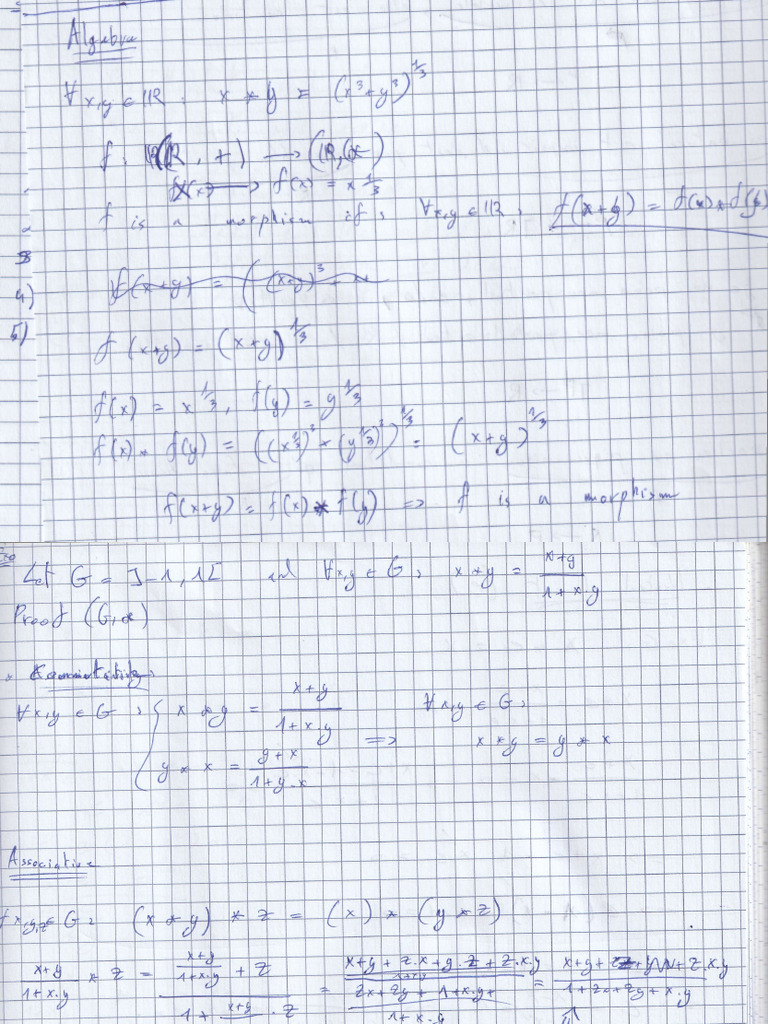 Algebra
∀x,y ∈ IR : x * y = (x³+y³)^1/3
f : (IR, +) → (IR, *)
→ f(x) = x^1/3
f is a morphism if : ∀x,y ∈ IR : f(x+y) = f(x) * f(y)
4) f(x+y) = ((x+y)³ +
5)
f(x+y) = (x+y)^1/3
f(x) = x^1/3, f(y) = y^1/3
f(x) * f(y) = ((x^1/3)³ + (y^1/3)³)^1/3 = (x+y)^1/3
f(x+y) = f(x) * f(y) => f is a morphism
Let G = ]-1,1[ and ∀x,y ∈ G : x * y = x+y / 1+x.y
Proof (G,*)
∀x,y ∈ G : { x * y = x+y / 1+x.y ∀x,y ∈ G :
y * x = y+x / 1+y.x => x * y = y * x
Associative
∀x,y,z ∈ G : (x * y) * z = (x) * (y * z)
x+y / 1+x.y * z = (x+y / 1+x.y + z) / (1 + x+y / . z) = (x+y+z.x+y.z+z.x.y / 1+xy) / (zx+zy+1+x.y / 1+x.y) = x+y+z+ +z.x.y / 1+zx+zy+x.y